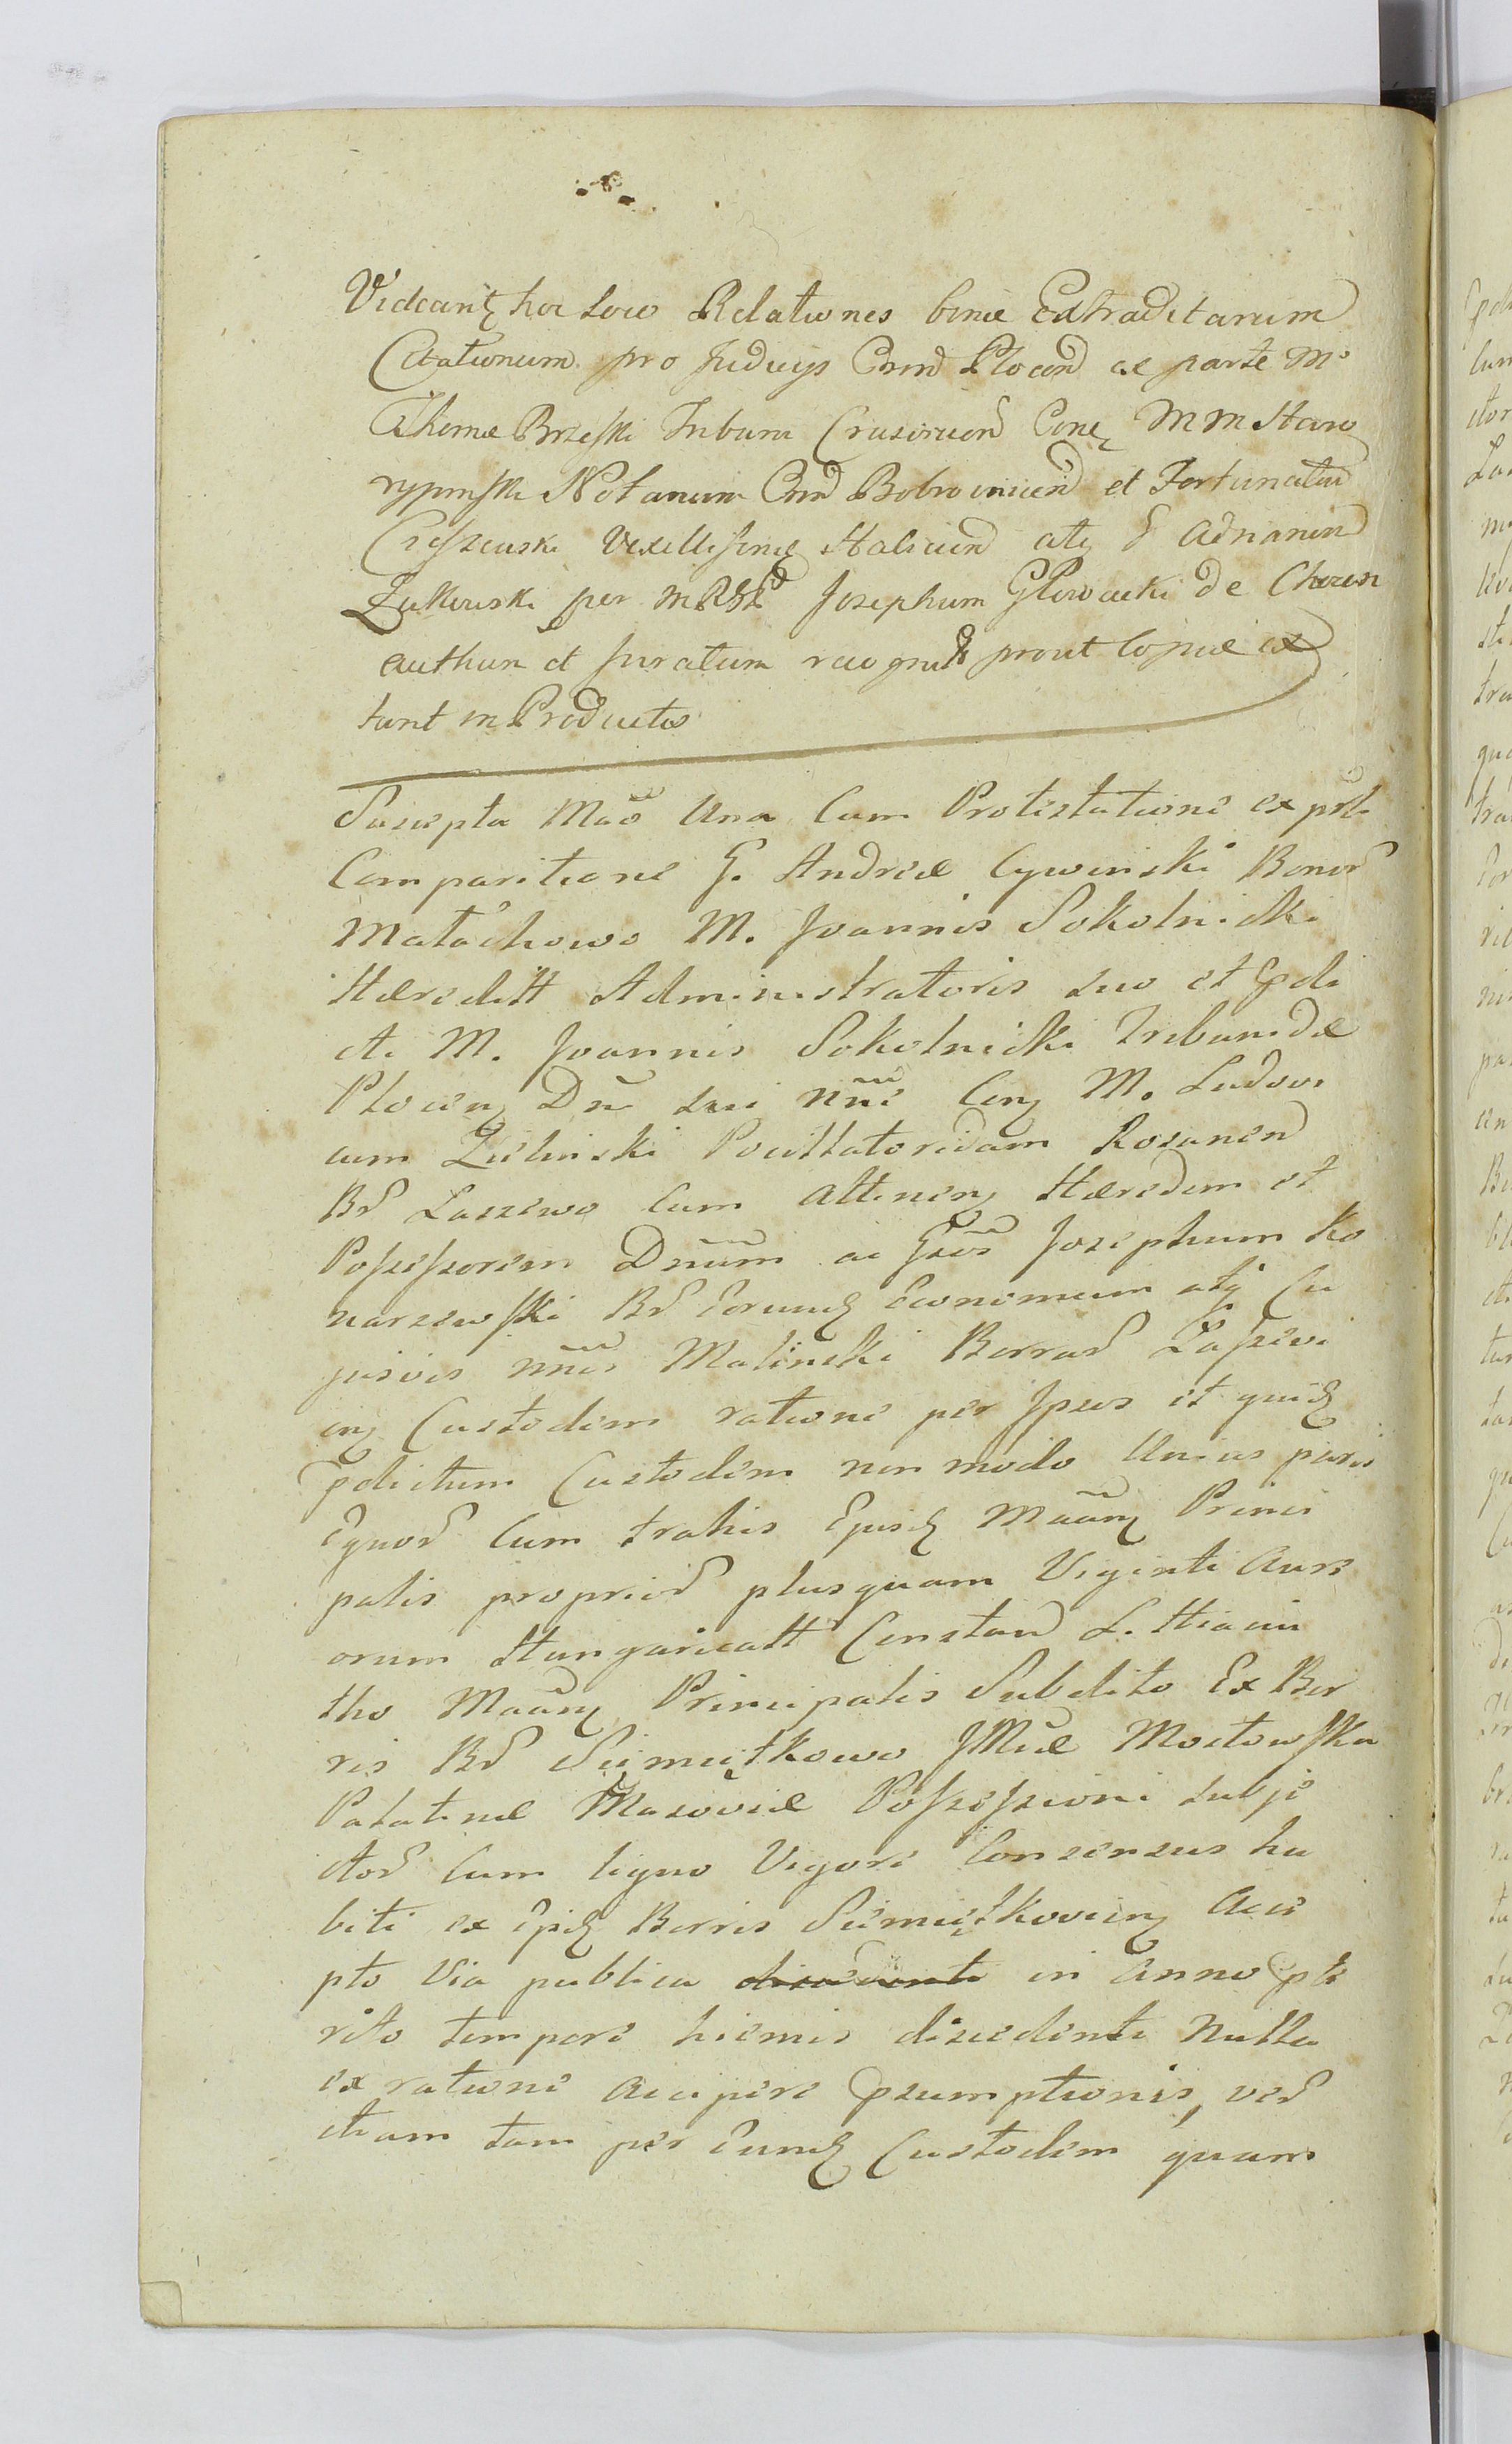 Videant hoc loco Relationes binæ Extraditarum
Citationum pro Judicijs Cnd Plocen ex parte M
Thomæ Brzeski Tribuni Con MM Staro
rypinski Notarium Bobrovnicen et Fortunatum
Cieszewski atq G Adrianum
Zukowski per Josephum Głowacki de
authen et Juratum recognit prout Copiæ ex
tant in Producto
Suscepta Mao Una Cum Protestatione ex psti
Comparitione G. Andreæ Cywinski Bonor
Małachowo M. Joannis Sokolnicki
Hæreditt Administratoris suo et pdi
cti M. Joannis Sokolnicki Tribunidæ
Plocen Dni sui nne Con M. Ludovi
cum Zielinski Pocillatoridam Rozanen
Br Laszewo Cum Attinen Hæredem et
Possessorem Dnum ac Gsos Josephum Ko
narzewski Br Eorund Economum atq Cu
jusvis nnis Malinski Borrar Łaszevi
en Custodem ratione per Ipsos et quid
pdictum Custodem non modo Unius paris
Equor Cum trahis Ejusd Maan Princi
palis proprior plusquam Viginti Aure
orum Hungaricatt Constan L. Hiacin
tho Maan Principalis Subdito Ex Bor
ris Br Siemiętkowo JMæ Mostowska
Palatinæ Masoviæ Possessioni subje
ctor Cum ligno Vigore Consensus ha
biti ex Ejusd Borris Siemiętkovien Acce
pto Via publica in Anno pte
rito tempore hiemis discedente Nulla
ex ratione Accipere psumptionis, ver
etiam tam per Eund Custodem quam